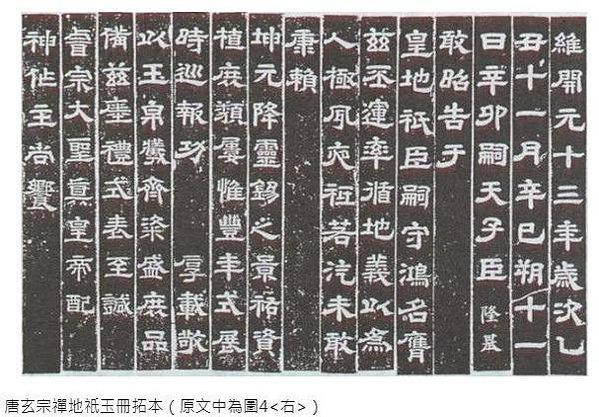 維開元十三年歲次乙
丑十一月辛巳朔十一
日辛卯嗣天子臣隆基
敢昭告于
皇地祇臣嗣守鴻名膺
茲丕運率循地義以為
人極夙夜祗若汔未敢
康賴
坤元降靈錫之景祐資
植庶類屢惟豐年式展
時巡報功 厚載敬
以玉帛犧齊粢盛庶品
備茲瘞禮式表至誠
睿宗大聖真皇帝配
神作主尚饗
唐玄宗禪地祇玉冊拓本（原文中為圖4<右>）